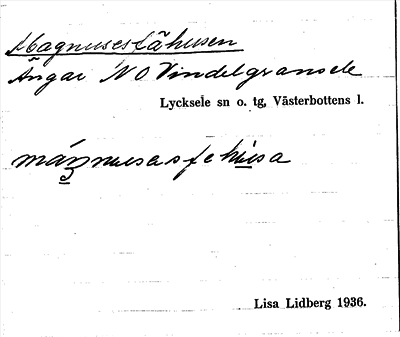 Magnusesfähusen
Ängar NO Vindelgransele
Lycksele sn o. tg, Västerbottens l.
Lisa Lidberg 1936.